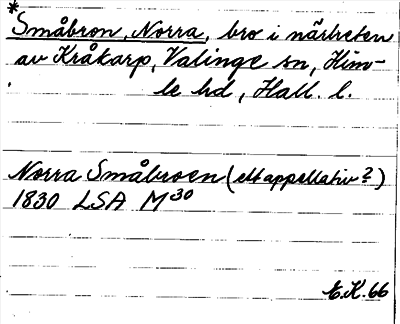 *
Småbron, Norra, bro i närheten
av Kråkarp, Valinge sn, Him-
le hd, Hall. l.
Norra Småbroen (ett appellativ?)
1830 LSA M30
E.K.66